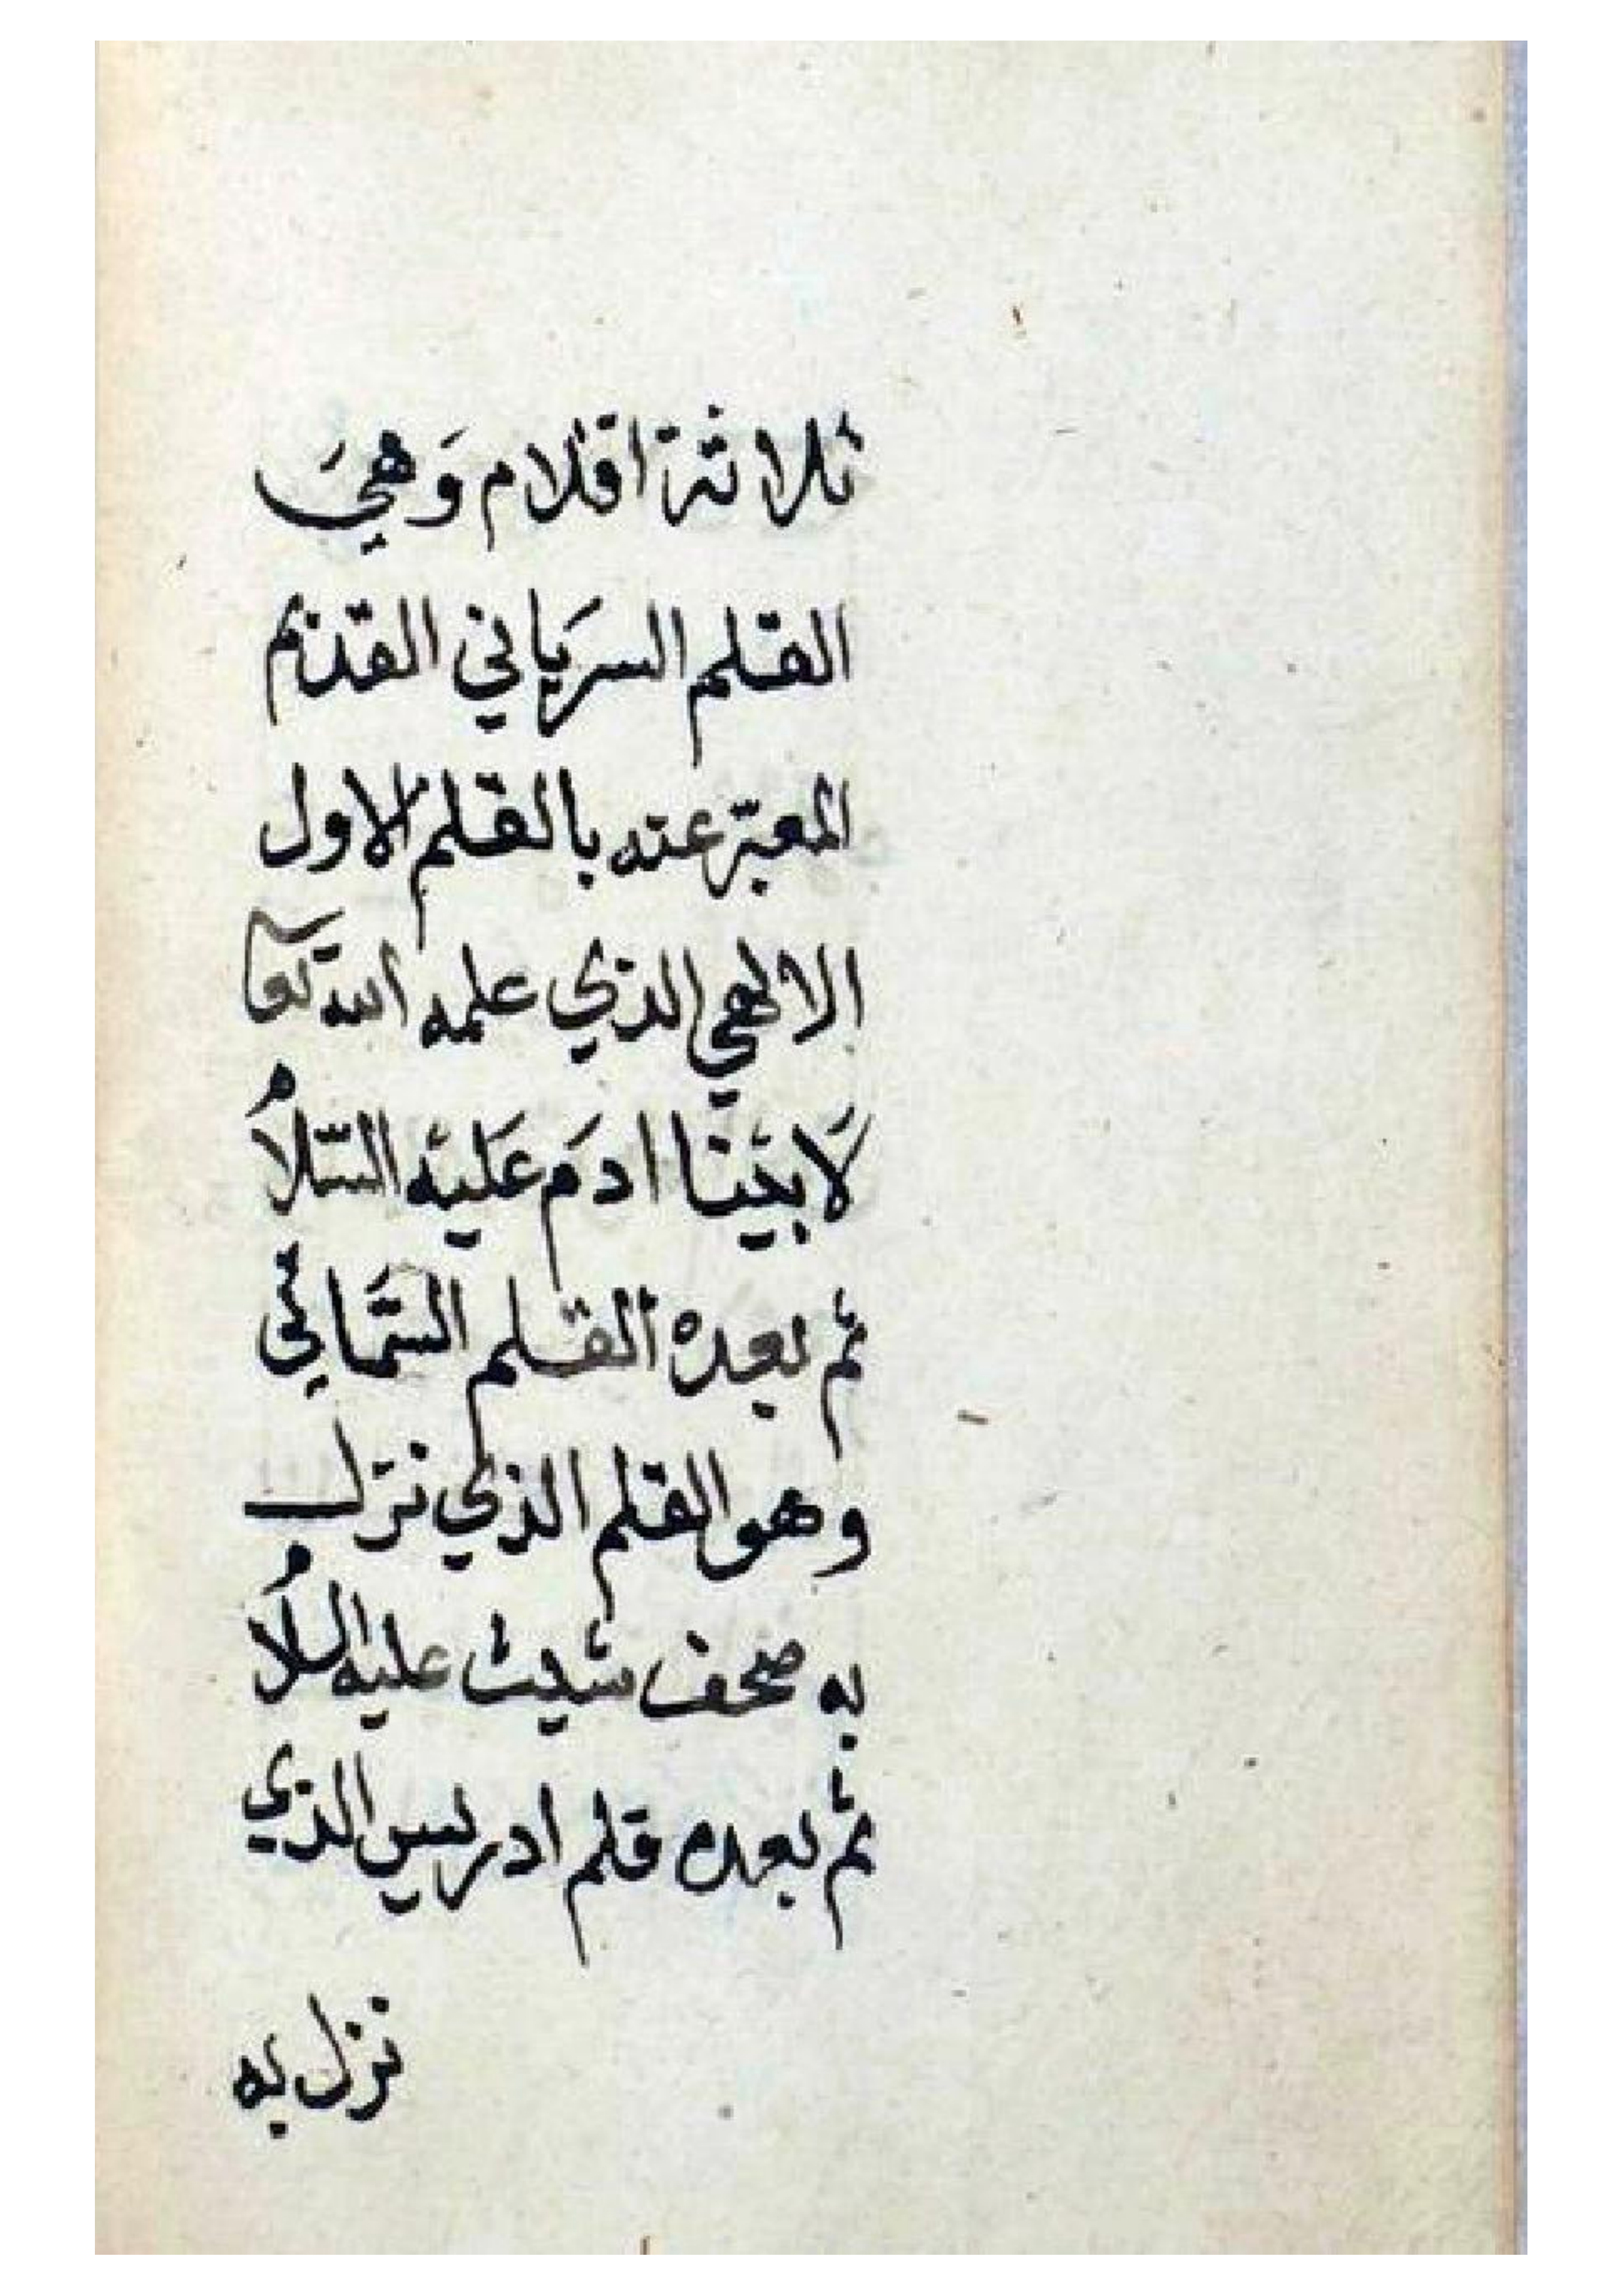 ثلاثة اقلام وَهيَ
القلم السريَاني القديم
المعبّر عنه بالقلم الاول
الالهي الذي علمه الله تعا
لَابيْنا ادمَ عَليْه السّلامُ
ثم بعده القلم السّمائي
وهو القلم الذي نزل
به صحف شيث عليه السلامُ
ثم بعده قلم ادريس الذي
نزل به